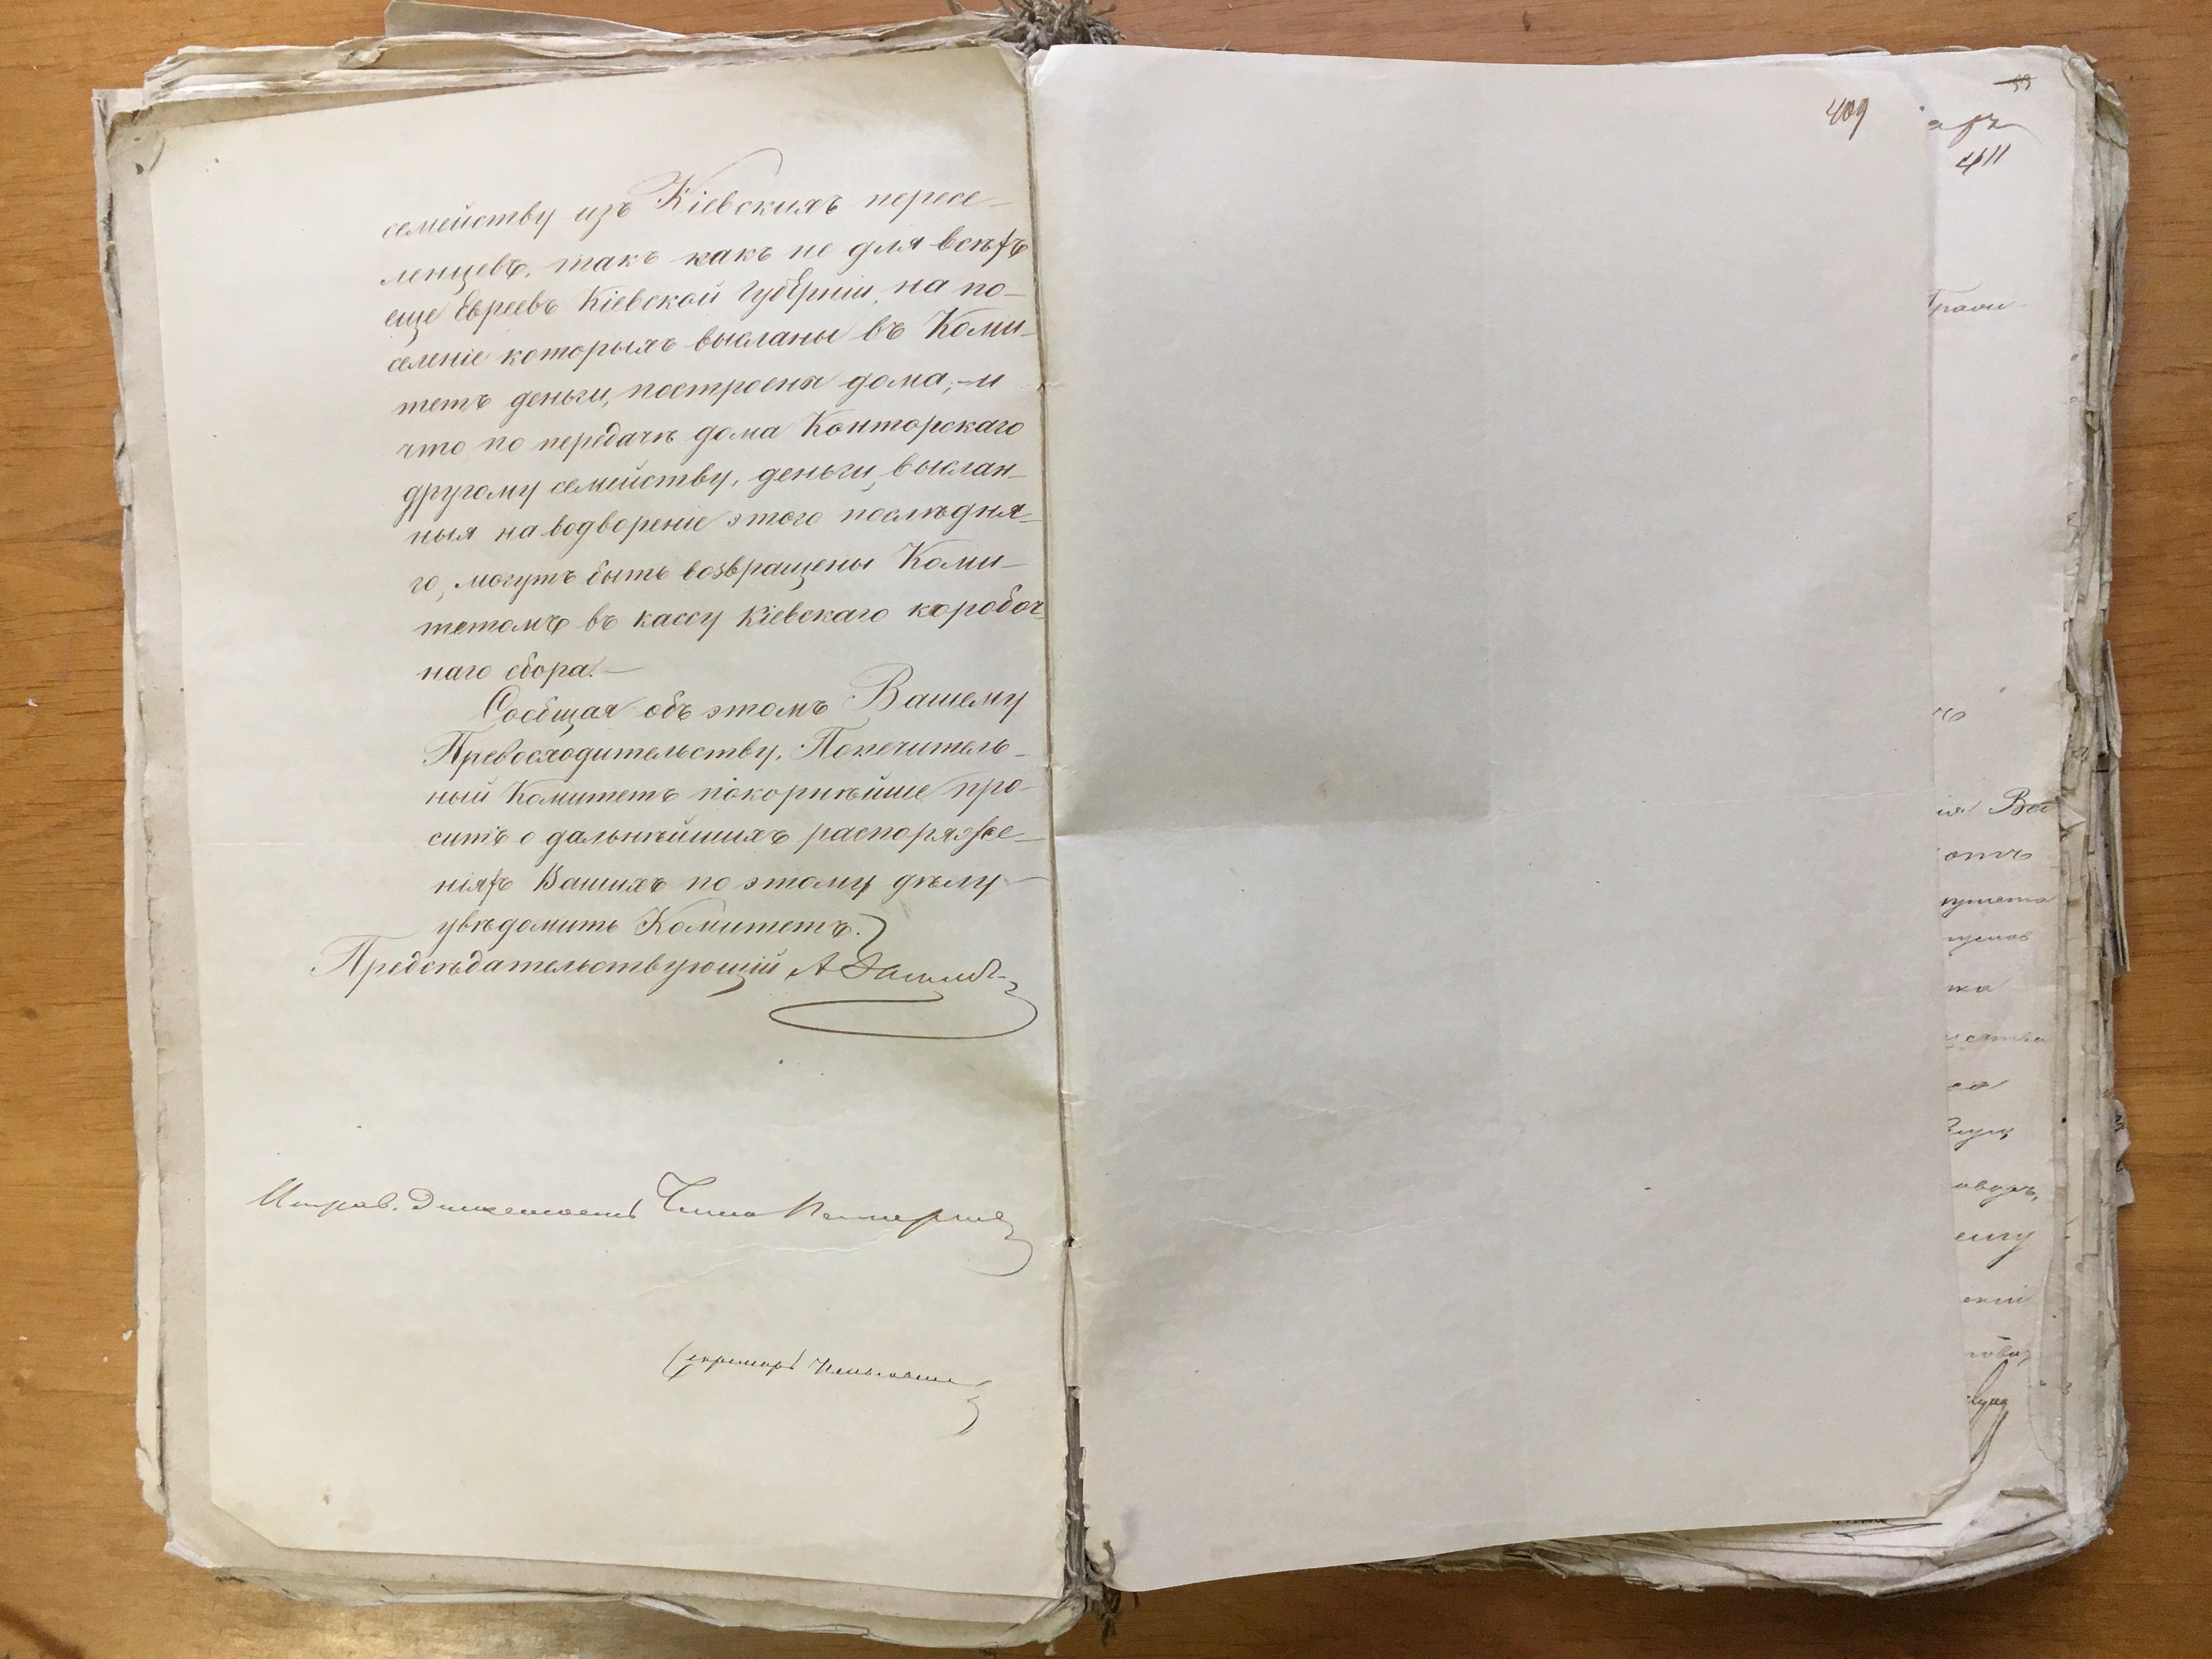 семейству изъ Кіевскихъ пересе-
ленцевъ, такъ какъ не для всѣхъ
еще Евреевъ Кіевской Губерніи, на по-
селеніе которыхъ высланы въ Коми-
тетъ деньги, построены дома; - и
что по передачѣ дома Конторскаго
другому семейству, деньги, выслан-
ныя на водвореніе этого послѣдня-
го, могутъ быть возвращены Коми-
тетомъ въ кассу Кіевскаго коробоч-
наго сбора. -
Сообщая объ этомъ Вашему
Превосходительству, Попечитель-
ный Комитетъ покорнѣйше про-
ситъ о дальнѣйшихъ распоряже-
ніяхъ Вашихъ по этому дѣлу
увѣдомить Комитетъ.
Предсѣдательствующій А.
Исправ. Должность Члена
Секретарь
409
99
411
отъ